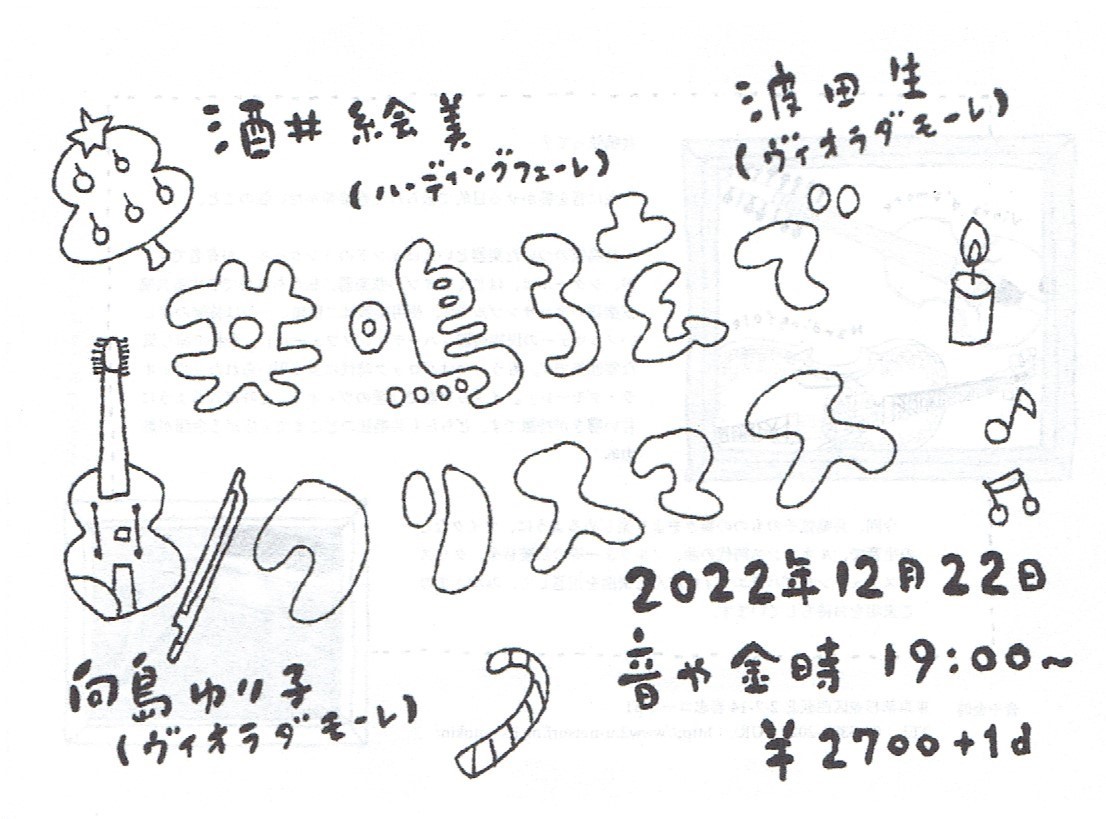 酒井絵美
(ハーディングフェーレ)
波田生
(ヴィオラダモーレ)
共鳴弦で
クリスマス
2022年12月22日
音や金時 19:00~
¥2700+1d
向島ゆり子
(ヴィオラダモーレ)